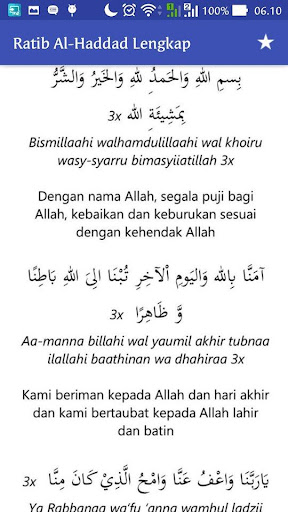 100% 06.10
Ratib Al-Haddad Lengkap
بِسمِ اللهِ وَالحَمدُ لِلهِ وَالخَيرُ وَالشَّرُّ
بِمَشِيئَةِ الله 3x
Bismillaahi walhamdulillaahi wal khoiru
wasy-syarru bimasyiiatillah 3x
Dengan nama Allah, segala puji bagi
Allah, kebaikan dan keburukan sesuai
dengan kehendak Allah
آمَنَّا بِاللهِ وَاليَومِ اْلآخِرِ تُبْنَا اِلَىَ اللهِ بَاطِنًا
وَّ ظَاهِرًا 3x
Aa-manna billahi wal yaumil akhir tubnaa
ilallahi baathinan wa dhahiraa 3x
Kami beriman kepada Allah dan hari akhir
dan kami bertaubat kepada Allah lahir
dan batin
يَارَبَّنَا وَاعْفُ عَنَّا وَامْحُ الَّذِيْ كَانَ مِنَّا 3x
Ya Rabbanga wa'fu 'anna wamhul ladzii